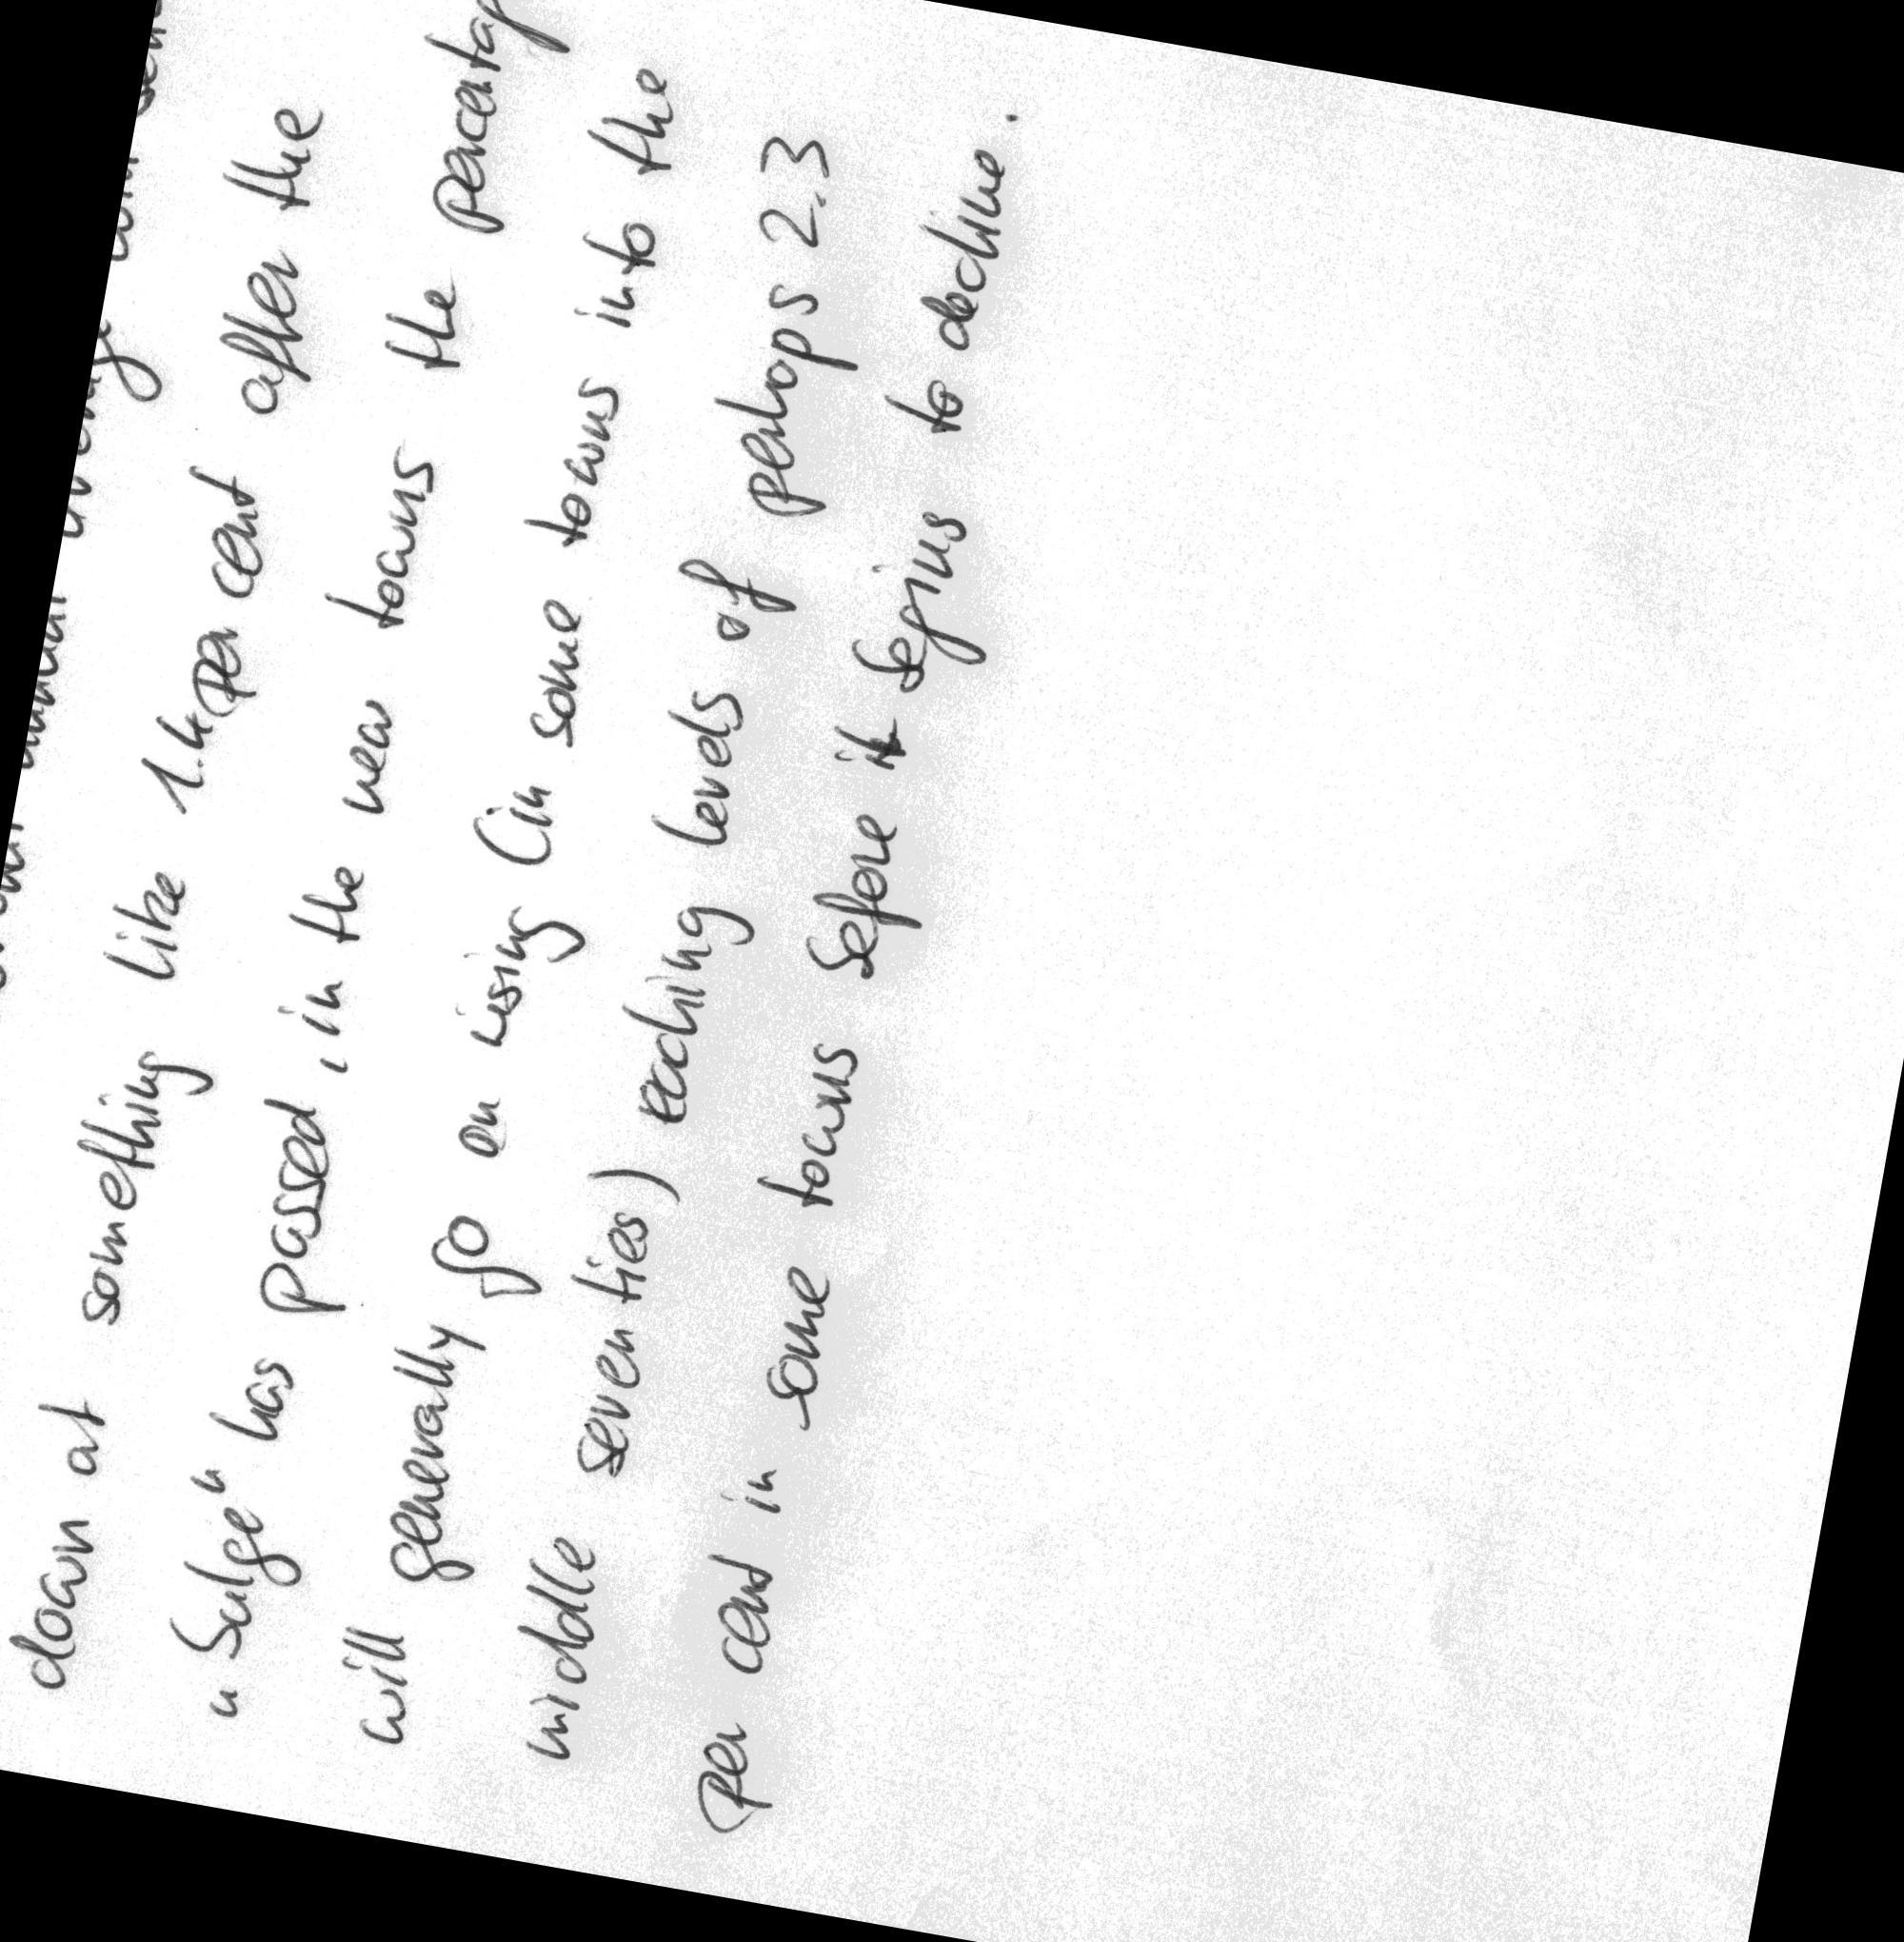 down at something like 1.4 per cent after the
"bulge" has passed, in the new towns the percentag
will generally go on rising (in some towns into the
middle seventies) reaching levels of perhaps 2.3
per cent in some towns before it begins to decline.